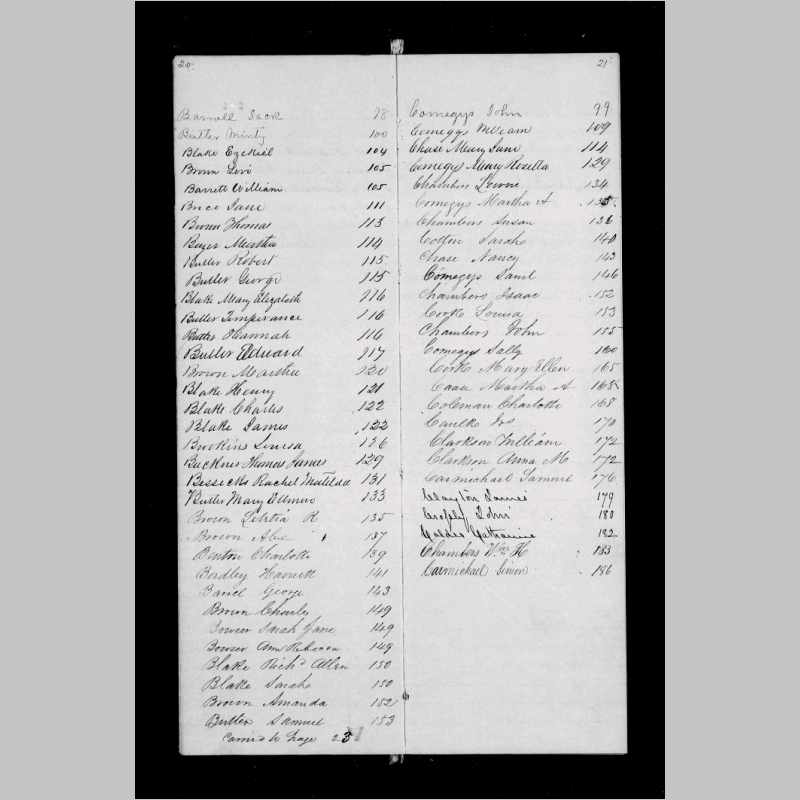 20
Barnell Jack 98
Butler Minty 100
Blake Ezekiel 104
Brown Levi 105
Barrett William 105
Brice Jane 111
Brown Thomas 113
Boyer Martha 114
Butler Robert 115
Butler George 115
Blake Mary Elizabeth 116
Butler Temperance 116
Butler Hannah 116
Butler Edward 117
Brown Martha 120
Blake Henry 121
Blake Charles 122
Blake James 122
Brookins Louisa 126
Buckner Thomas James 129
Bessicks Rachel Matilda 131
Butler Mary 133
Brown Letitia R 135
Brown Alex 137
Benton Charlotte 139
Bordley Harriett 141
Barrel George 143
Brown Charles 149
Bowser Sarah Jane 149
Bowser Ann Rebecca 149
Blake Richd Allen 150
Blake Sarah 150
Brown Amanda 152
Butler Samuel 153
Carrid to Page 23
21
Comegys John 99
Comeggs William 109
Chase Mary Jane 114
Comegys Mary Rosetta 129
Chambers 134
Comegys Martha A 135
Chambers Susan 136
Cotton Sarah 140
Chase Nancy 143
Comegys Saml 146
Chambers Isaac 152
Cooke Louisa 153
Chambers John 155
Comegys Sally 160
Cooke Mary Ellen 165
Martha A 165
Coleman Charlotte 165
Caulk Jos 170
Clarkson William 172
Clarkson Anna M 172
Carmichael Samuel 176
Clayton James 179
John 180
Catharine 182
Chambers Wm H 183
Carmichael Simon 186